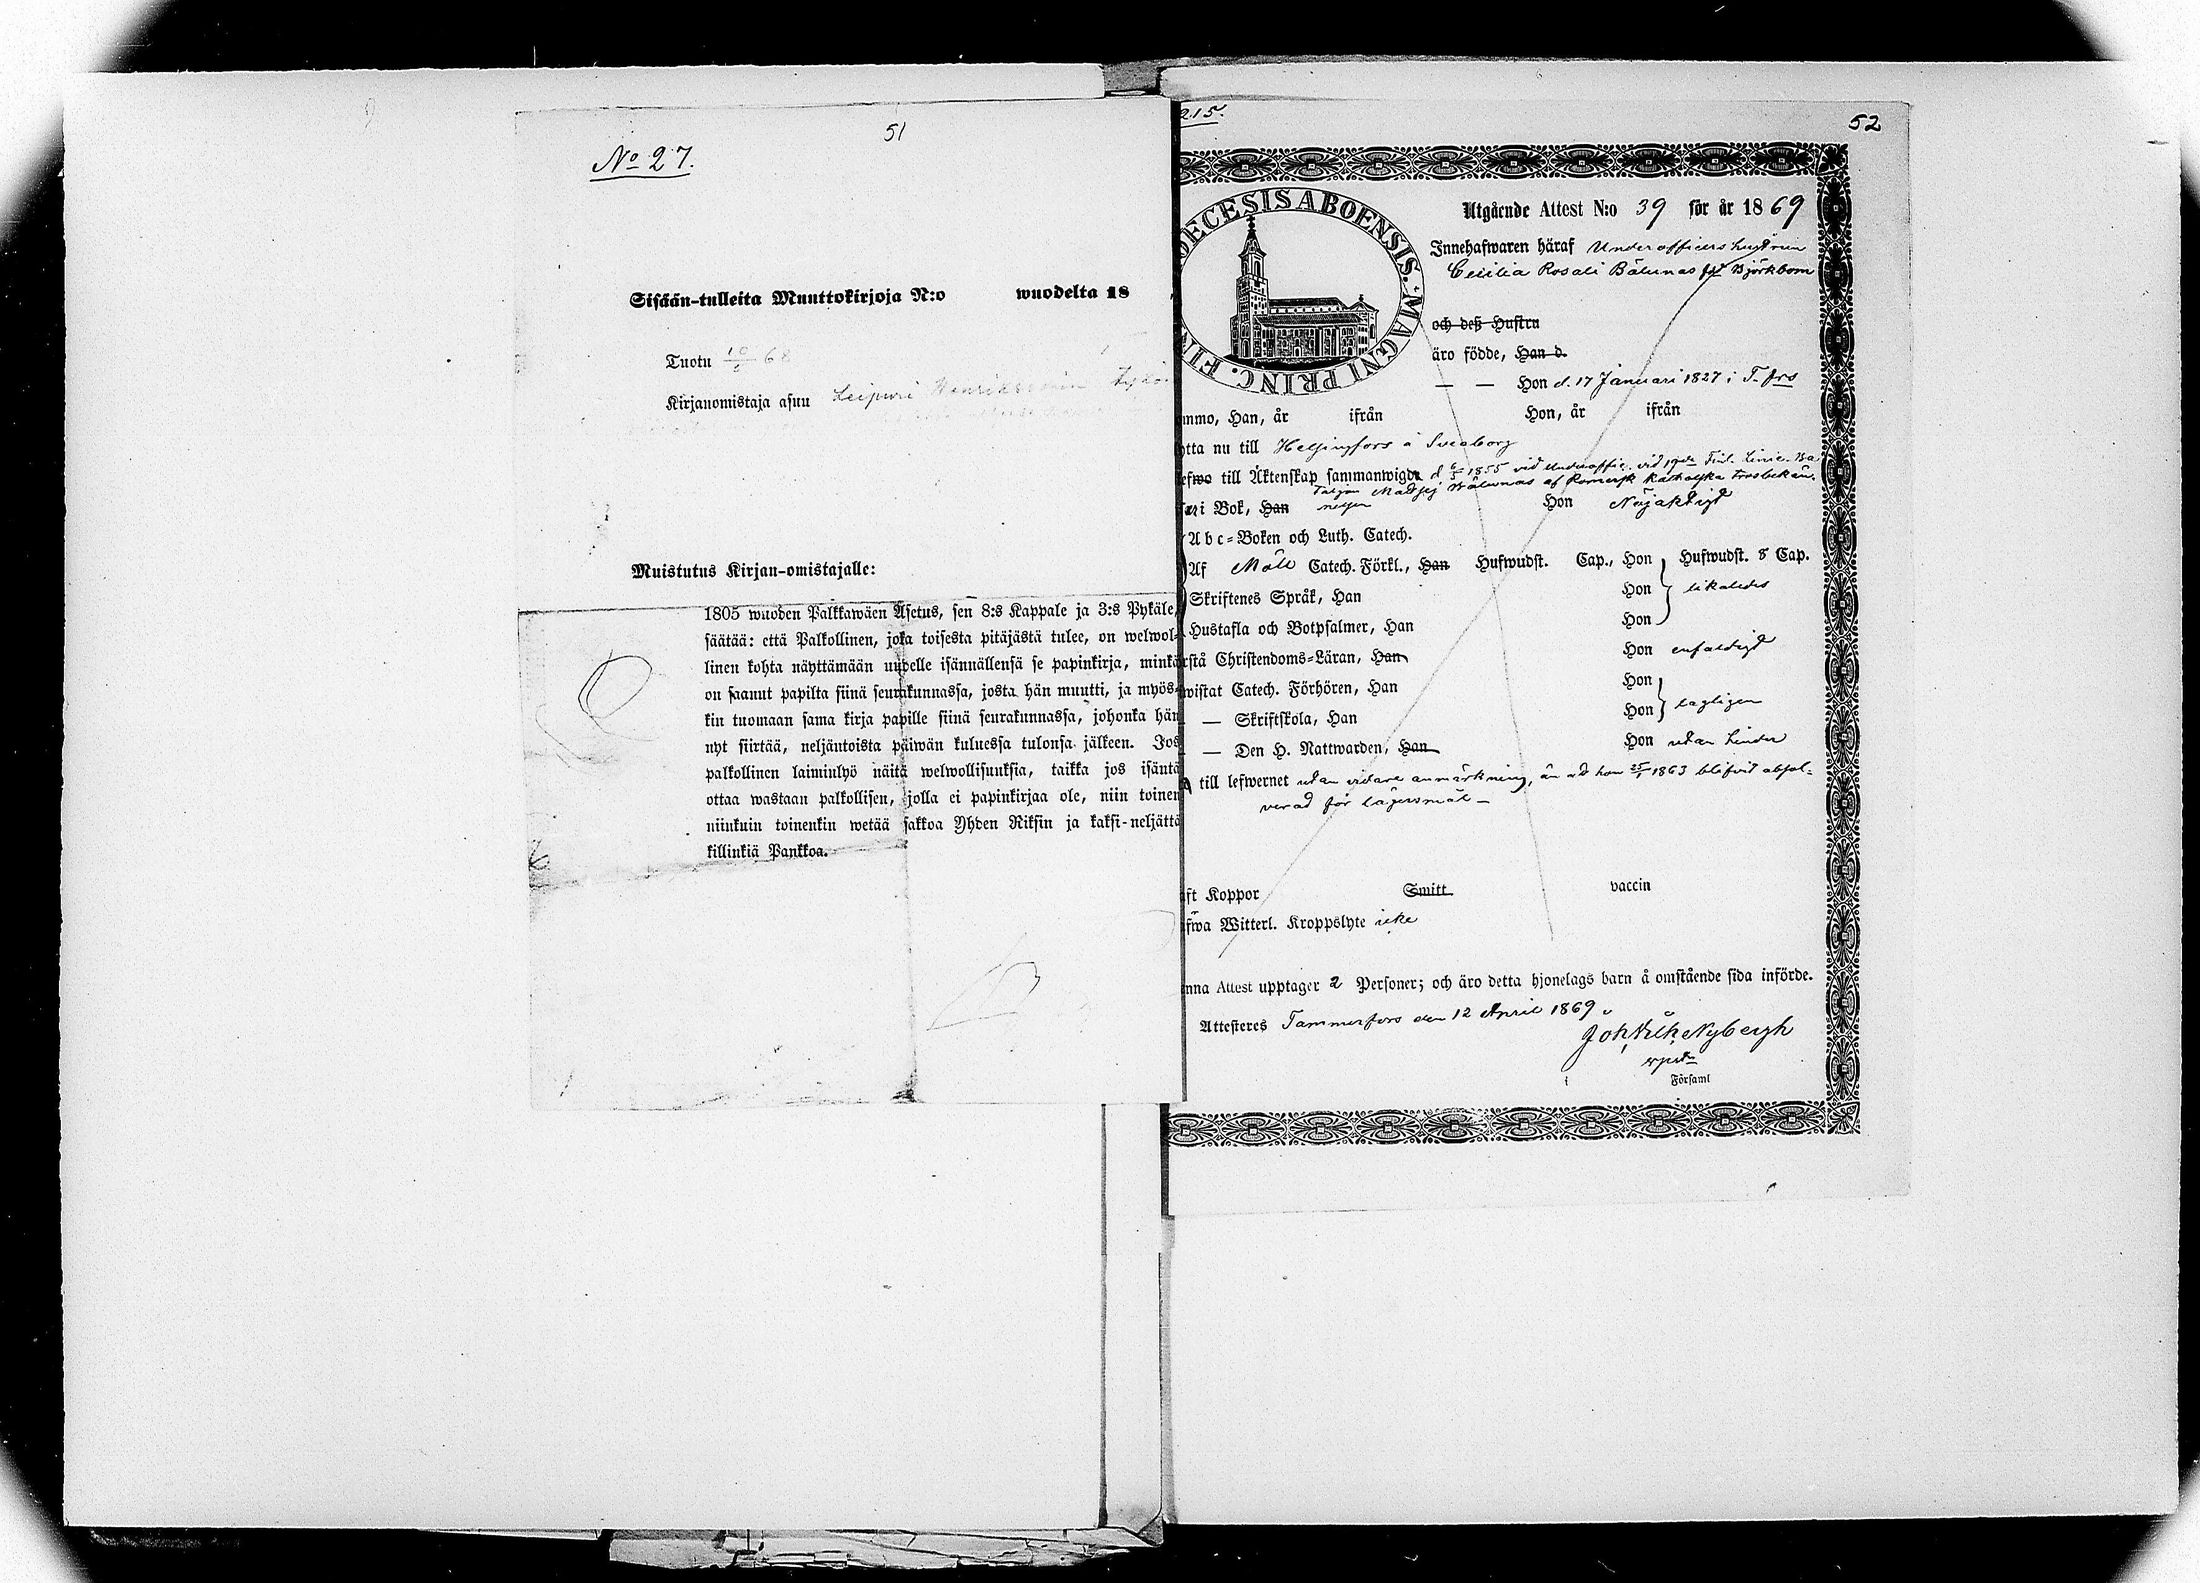 51
No 27.
Sisään-tulleita Muuttokirjoja N:o wuodelta 18
Tuotu
Kirjanomistaja asuu Leipuri
Muistutus Kirjan-omistajalle:
1805 wuoden Palkkawäen Asetus, sen 8:s Kappale ja 3:s Pykäle,
säätää: että Palkollinen, joka toisesta pitäjästä tulee, on welwol-
linen kohta näyttämään uudelle isännällensä se papinkirja, minkä
on saanut papilta siinä seurakunnassa, josta hän muutti, ja myös-
kin tuomaan sama kirja papille siinä seurakunnassa, johonka hän
nyt siirtää, neljäntoista päiwän kuluessa tulonsa jälkeen. Jos
palkollinen laiminlyö näitä welwollisuuksia, taikka jos isäntä
ottaa wastaan palkollisen, jolla ei papinkirjaa ole, niin toinen
niinkuin toinenkin wetää sakkoa Yhden Riksin ja kaksi-neljättä
killinkiä Pankkoa.
215.
52
DECESIS ABOENSIS. MAGNI PRINC. FIN
Utgående Attest N:o 39 för år 1869
Innehafwaren häraf Underofficers hustrun
Cecilia Rosali Bälunas född Björkbom
och deß Hustru
äro födde, Han d.
— — Hon d. 17 Januari 1827 i T. fors
mmo, Han, år ifrån Hon, år ifrån
tta nu till Helsingfors å Sveaborg
efwo till Äktenskap sammanwigde d 6/5 1855 vid Underoffic. vid 19de Finl. Linie Ba
taljon Matsej Bälunas af Romersk Katholska trosbekän-
nelsen
i Bok, Han Hon Nöjaktigt
Abc-Boken och Luth. Catech.
Af Möll Catech. Förkl., Han Hufwudst. Cap., Hon Hufwudst. 8 Cap.
Skriftenes Språk, Han Hon likaledes
Hustafla och Botpsalmer, Han Hon
rstå Christendoms-Läran, Han Hon enfaldigt
wistat Catech. Förhören, Han Hon
— Skriftskola, Han Hon lagligen
— Den H. Nattwarden, Han Hon utan hinder
till lefwernet utan vidare anmärkning, än att hon 25/1 1863 blifvit absol-
verad för lägersmål —
ft Koppor Smitt vaccin
fwa Witterl. Kroppslyte icke
nna Attest upptager 2 Personer; och äro detta hjonelags barn å omstående sida införde.
Attesteres Tammerfors den 12 April 1869.
Joh. Vilh. Nybergh
Församl